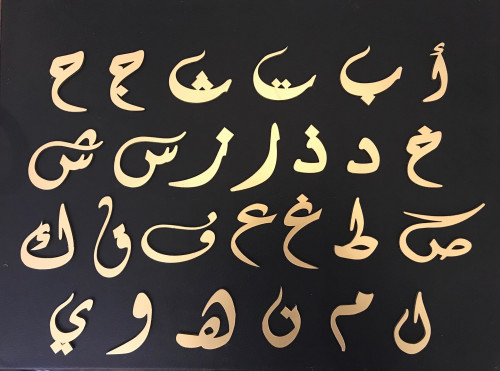 أ ب ت ث ج ح
خ د ذ ر ز س ش
ص ط غ ع ف ق ك
ل م ن ه و ي